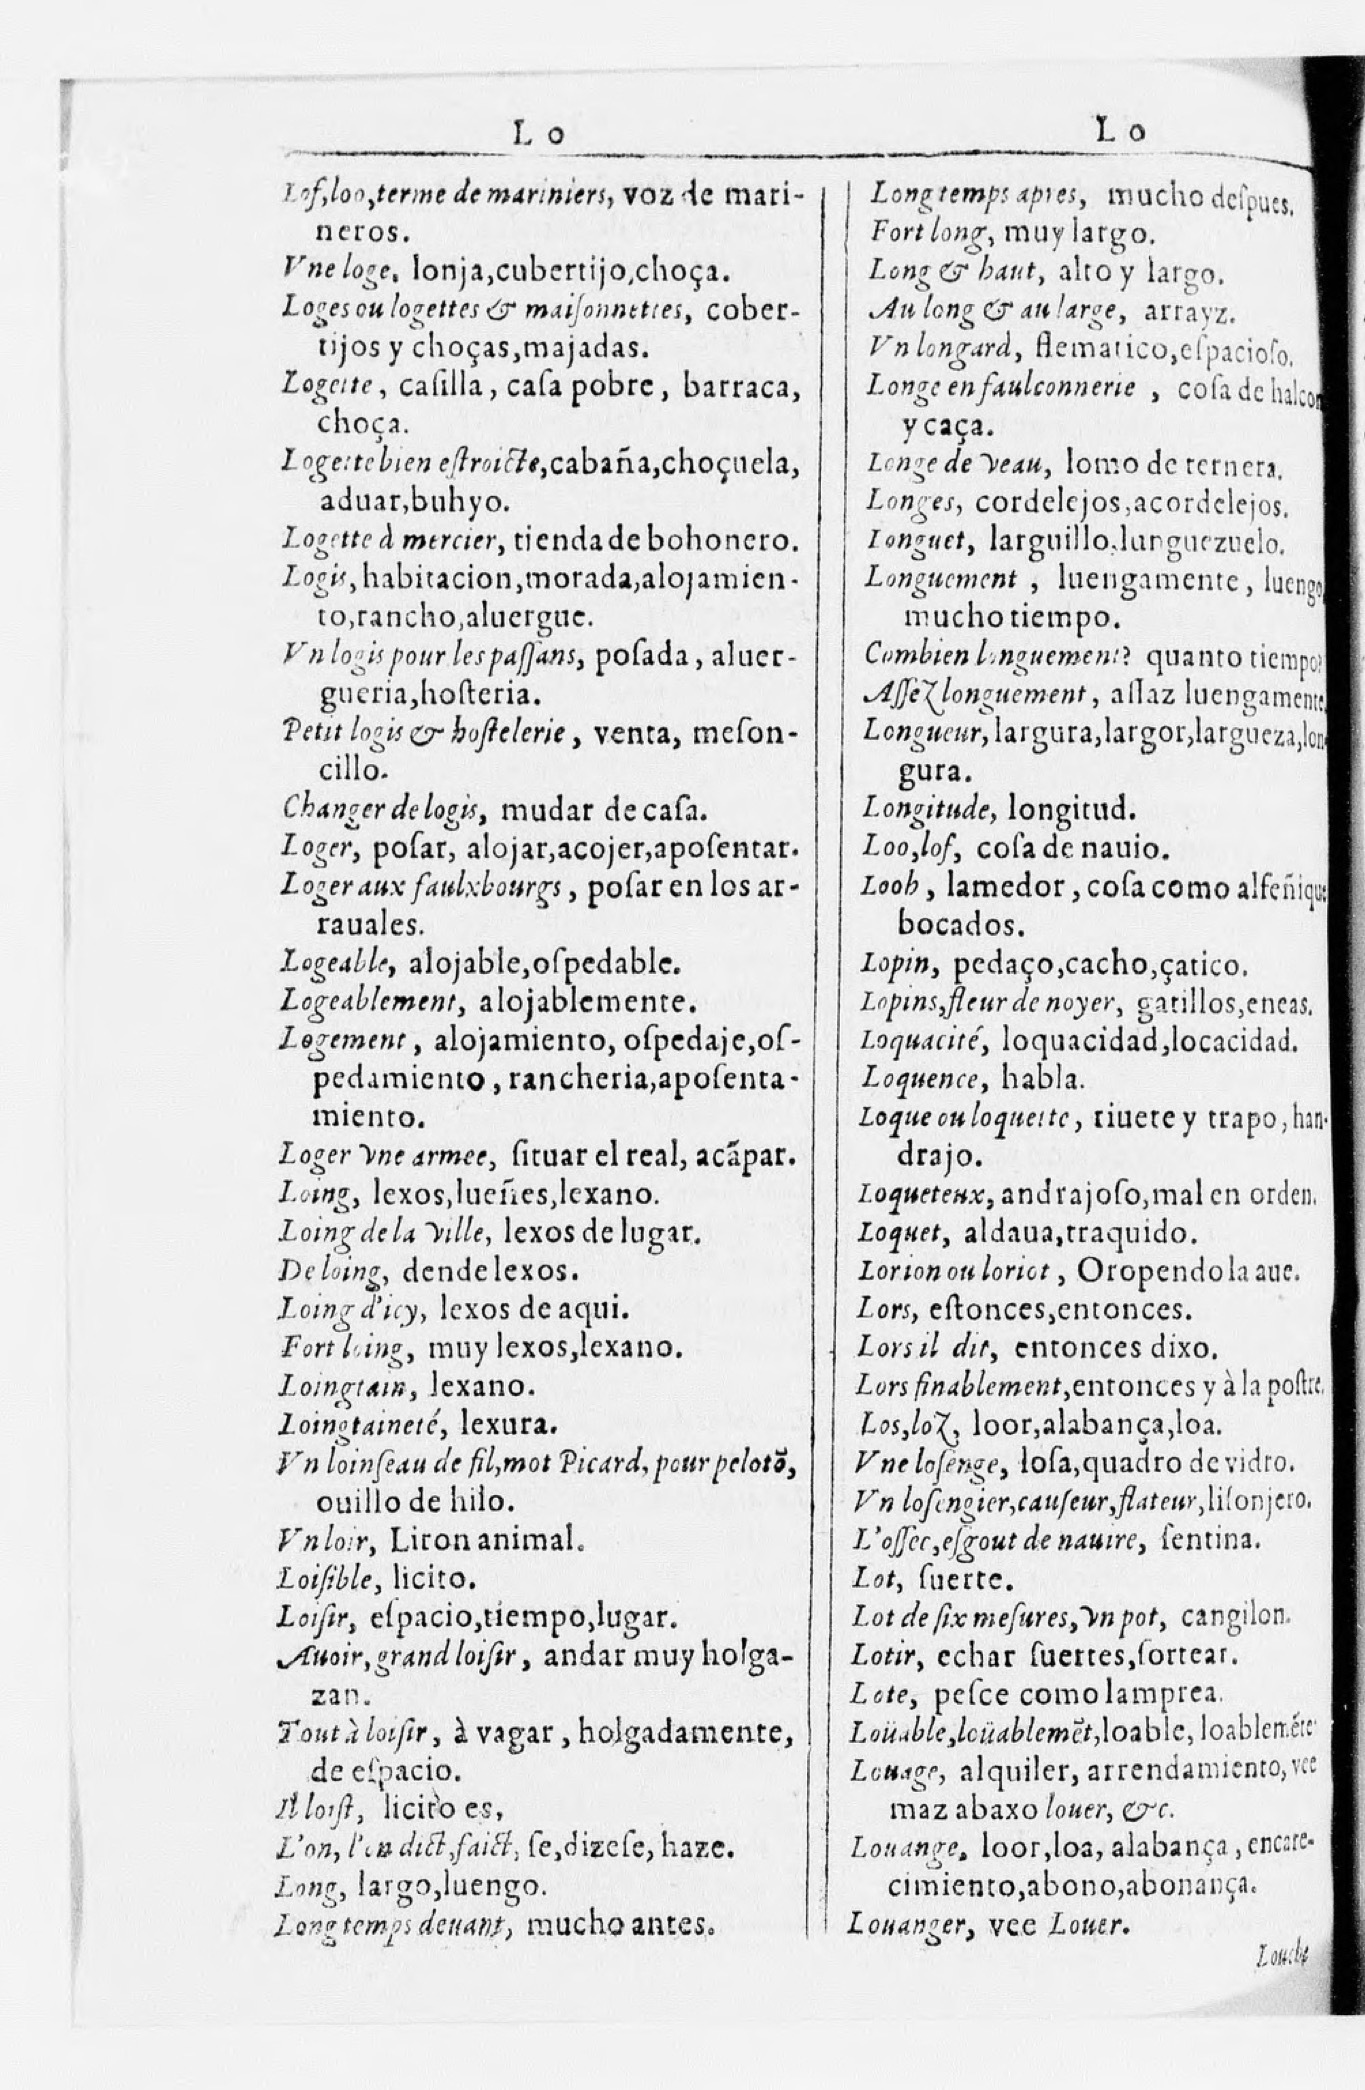 L o
Lof,loo,terme de mariniers, voz de mari-
neros.
Vne loge, lonja,cubertijo,choça.
Loges ou logettes & maiſonnettes, cober-
tijos y choças,majadas.
Logette, caſilla, caſa pobre, barraca,
choça.
Logette bien eſtroicte,cabaña,choçuela,
aduar,buhyo.
Logette à mercier, tienda de bohonero.
Logis, habitacion,morada,alojamien-
to,rancho,aluergue.
Vn logis pour les paſſans, poſada, aluer-
gueria,hoſteria.
Petit logis & hoſtelerie, venta, meſon-
cillo.
Changer de logis, mudar de caſa.
Loger, poſar, alojar,acojer,apoſentar.
Loger aux faulxbourgs, poſar en los ar-
rauales.
Logeable, alojable,oſpedable.
Logeablement, alojablemente.
Logement, alojamiento, oſpedaje,oſ-
pedamiento, rancheria,apoſenta-
miento.
Loger vne armee, ſituar el real, acãpar.
Loing, lexos,lueñes,lexano.
Loing de la ville, lexos de lugar.
De loing, dende lexos.
Loing d'icy, lexos de aqui.
Fort loing, muy lexos,lexano.
Loingtain, lexano.
Loingtaineté, lexura.
Vn loinſeau de fil,mot Picard, pour pelotõ,
ouillo de hilo.
Vn loir, Liron animal.
Loiſible, licito.
Loiſir, eſpacio,tiempo,lugar.
Auoir, grand loiſir, andar muy holga-
zan.
Tout à loiſir, à vagar, holgadamente,
de eſpacio.
Il loiſt, licito es,
L'on, l'on dict,faict, ſe,dizeſe, haze.
Long, largo,luengo.
Long temps deuant, mucho antes.
L o
Long temps apres, mucho deſpues.
Fort long, muy largo.
Long & haut, alto y largo.
Au long & au large, arrayz.
Vn longard, flematico,eſpacioſo.
Longe en faulconnerie, coſa de halcon
y caça.
Longe de veau, lomo de ternera.
Longes, cordelejos,acordelejos.
Longuet, larguillo,lunguezuelo.
Longuement, luengamente, luengo,
mucho tiempo.
Combien longuement? quanto tiempo?
Aſſez longuement, aſſaz luengamente.
Longueur, largura,largor,largueza,lon-
gura.
Longitude, longitud.
Loo,lof, coſa de nauio.
Looh, lamedor, coſa como alfeñique
bocados.
Lopin, pedaço,cacho,çatico.
Lopins,fleur de noyer, gatillos,eneas.
Loquacité, loquacidad,locacidad.
Loquence, habla.
Loque ou loquette, tiuete y trapo, han-
drajo.
Loqueteux, andrajoſo,mal en orden.
Loquet, aldaua,traquido.
Lorion ou loriot, Oropendola aue.
Lors, eſtonces,entonces.
Lors il dit, entonces dixo.
Lors finablement,entonces y à la poſtre.
Los,loz, loor,alabança,loa.
Vne loſenge, loſa,quadro de vidro.
Vn loſengier,cauſeur,flateur,liſonjero.
L'oſſec,eſgout de nauire, ſentina.
Lot, ſuerte.
Lot de ſix meſures,vn pot, cangilon.
Lotir, echar ſuertes,ſortear.
Lote, peſce como lamprea.
Loüable,loüablemẽt,loable, loablemẽte
Louage, alquiler, arrendamiento, vee
maz abaxo louer, &c.
Louange, loor,loa, alabança, encare-
cimiento,abono,abonança.
Louanger, vee Louer.
Louche